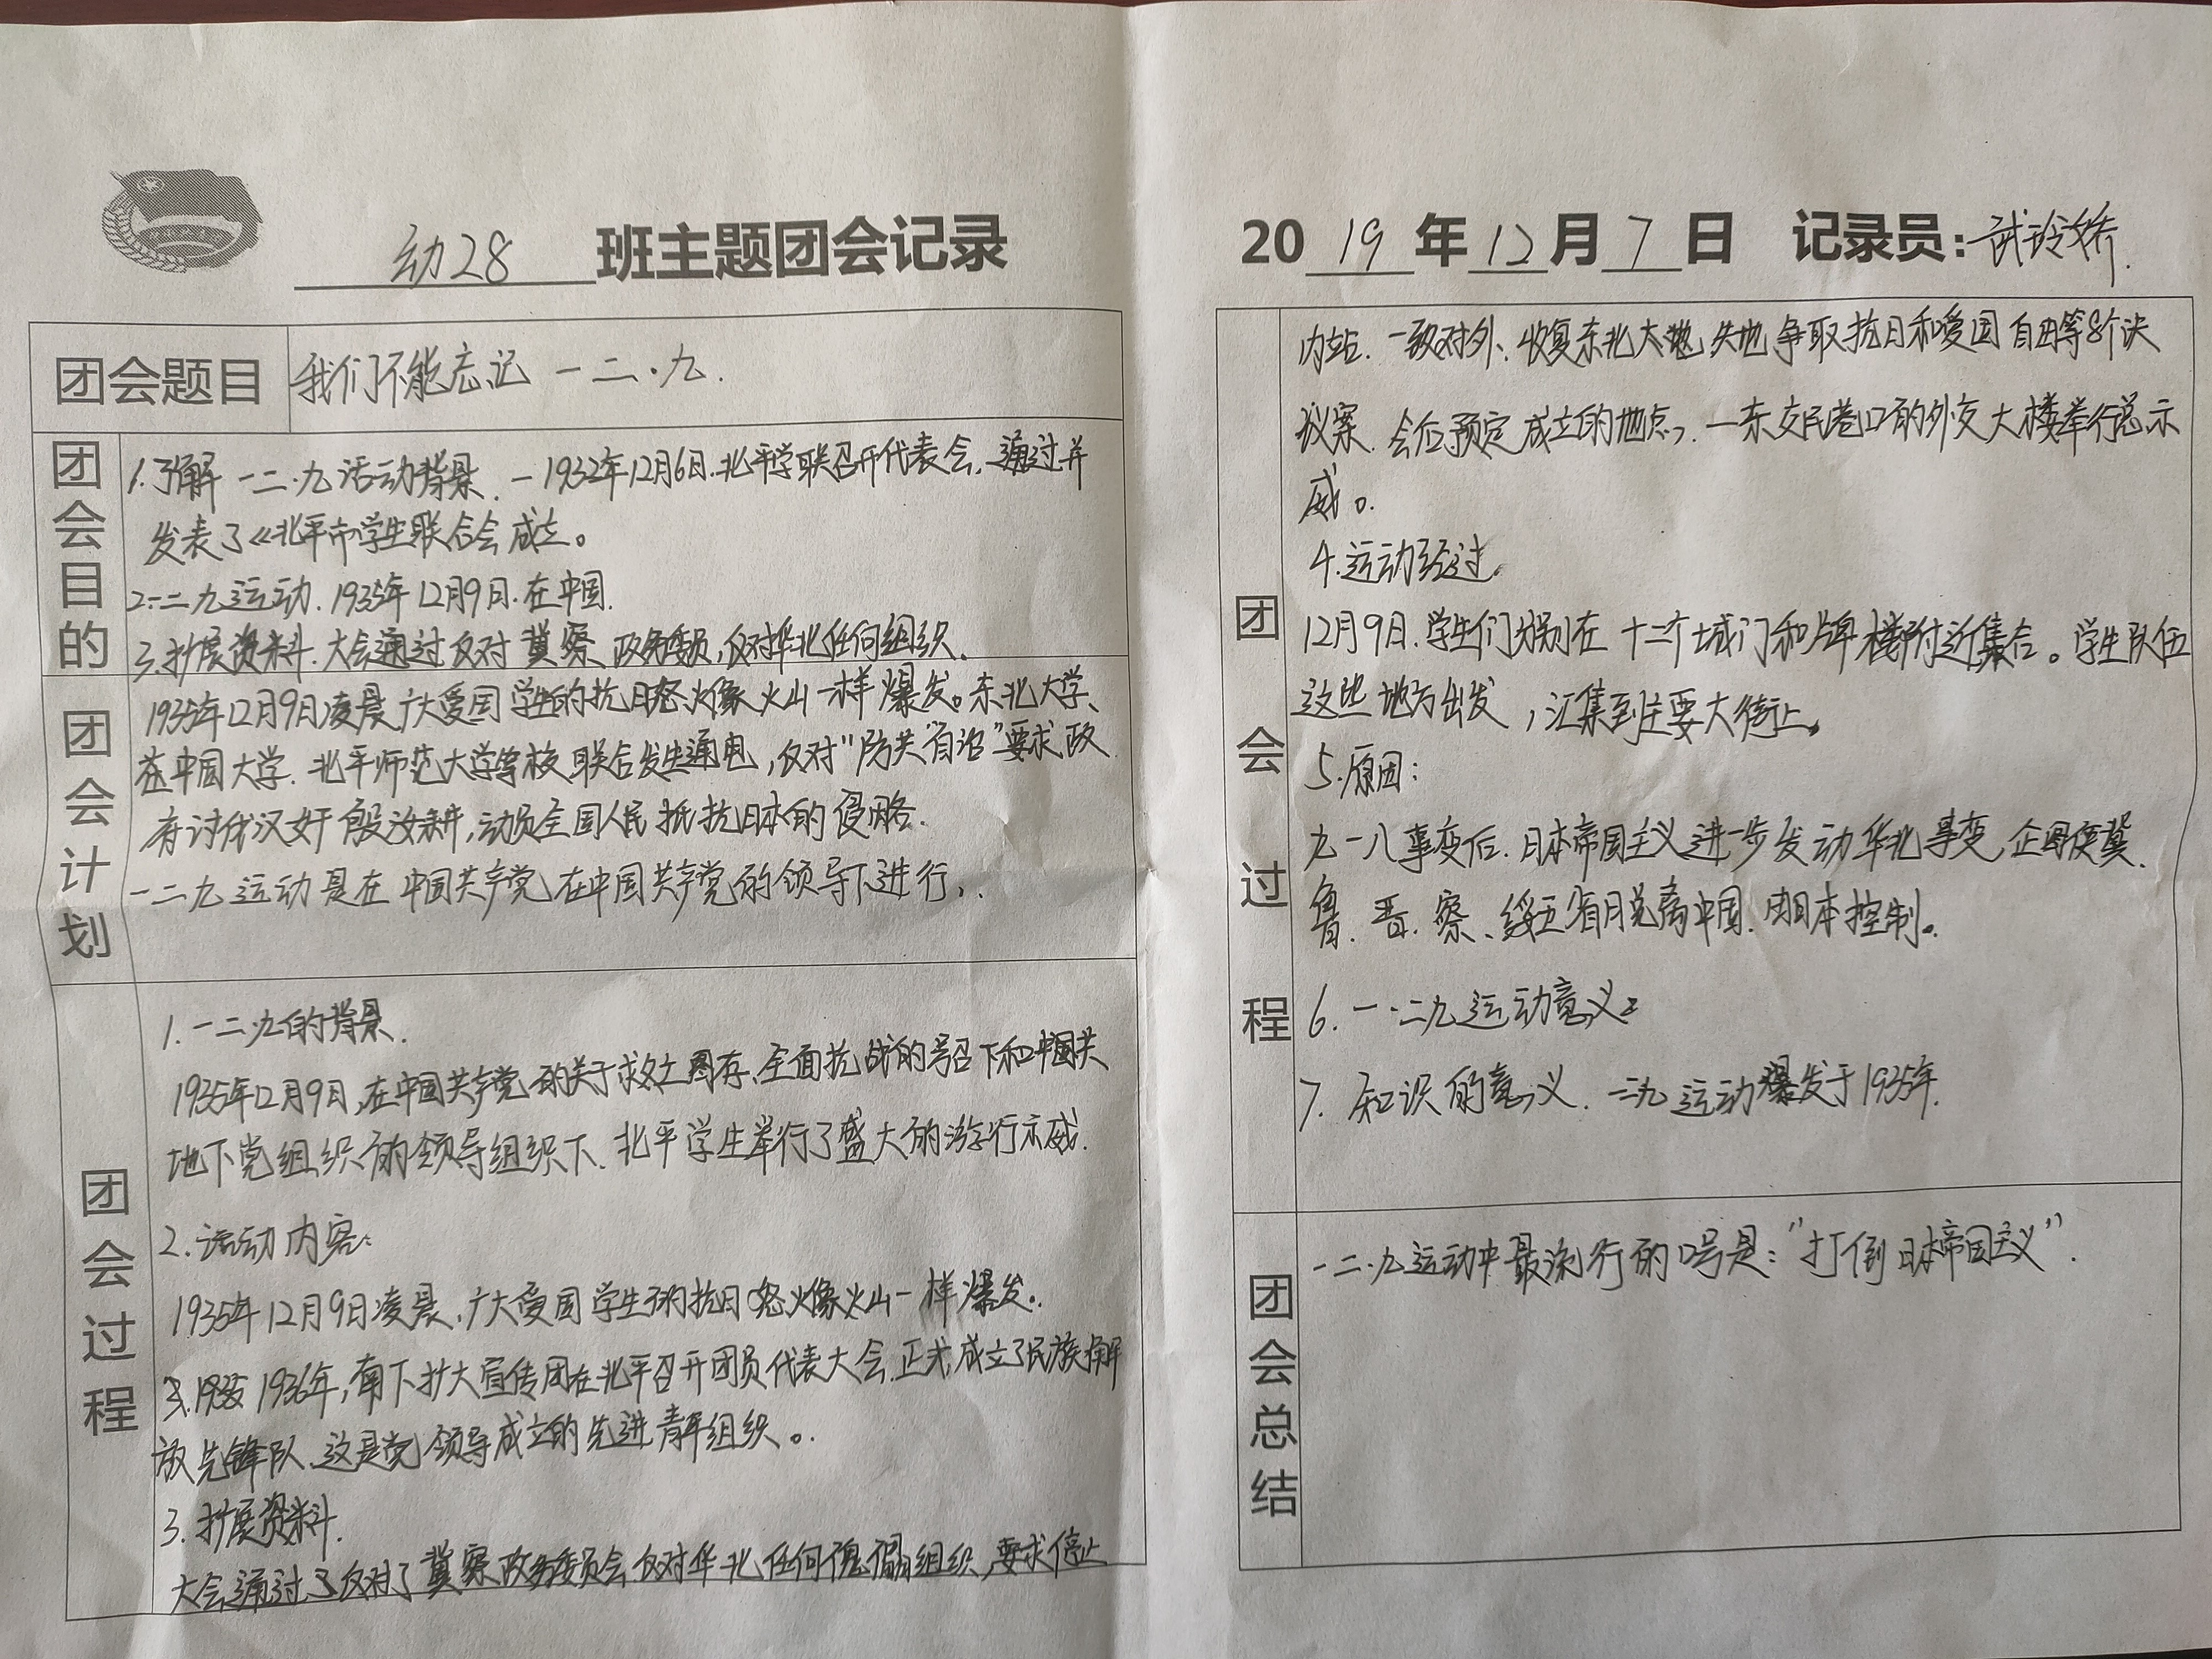 动28 班主题团会记录
团会题目 我们不能忘记 一二·九.
团会目的
1.了解 一二·九活动背景. 一1932年12月6日.北平学联召开代表会,通过并
发表了《北平市学生联合会成立。
2.一二九运动.1935年12月9日.在中国.
3.扩展资料.大会通过反对冀察政务委员,反对华北任何组织.
团会计划
1935年12月9日凌晨广大爱国学生的抗日怒火像火山一样爆发。东北大学、
中国大学.北平师范大学等校联合发生通电,反对"防共自治"要求政
府讨伐汉奸殷汝耕,动员全国人民抵抗日本的侵略.
一二九运动是在中国共产党在中国共产党的领导下进行.
团会过程
1.一二·九的背景.
1935年12月9日,在中国共产党的关于救亡图存、全面抗战的号召下和中国共
地下党组织的领导组织下.北平学生举行了盛大的游行示威.
2.活动内容:
1935年12月9日凌晨,广大爱国学生的抗日怒火像火山一样爆发.
1936年,南下扩大宣传团在北平召开团员代表大会.正式成立了民族解
放先锋队.这是党领导成立的先进青年组织。
3.扩展资料.
大会通过了反对了冀察政务委员会反对华北任何傀儡组织,要求停止
20 19 年 12 月 7 日 记录员:武玲娇.
团会过程
内战.一致对外、收复东北 失地争取抗日和爱国自由等8个决
议案.会后预定成立的地点,一东交民巷口的外交大楼举行总示
威。
4.运动经过.
12月9日.学生们分别在十二个城门和牌楼附近集合。学生队伍
这些地方出发,汇集到主要大街上。
5.原因:
九一八事变后.日本帝国主义进一步发动华北事变,企图使冀、
鲁.晋.察、绥五省脱离中国.由日本控制。
6.一·二九运动意义:
7.知识的意义.一二九运动爆发于1935年.
团会总结
一二·九运动中最流行的口号是:"打倒日本帝国主义".